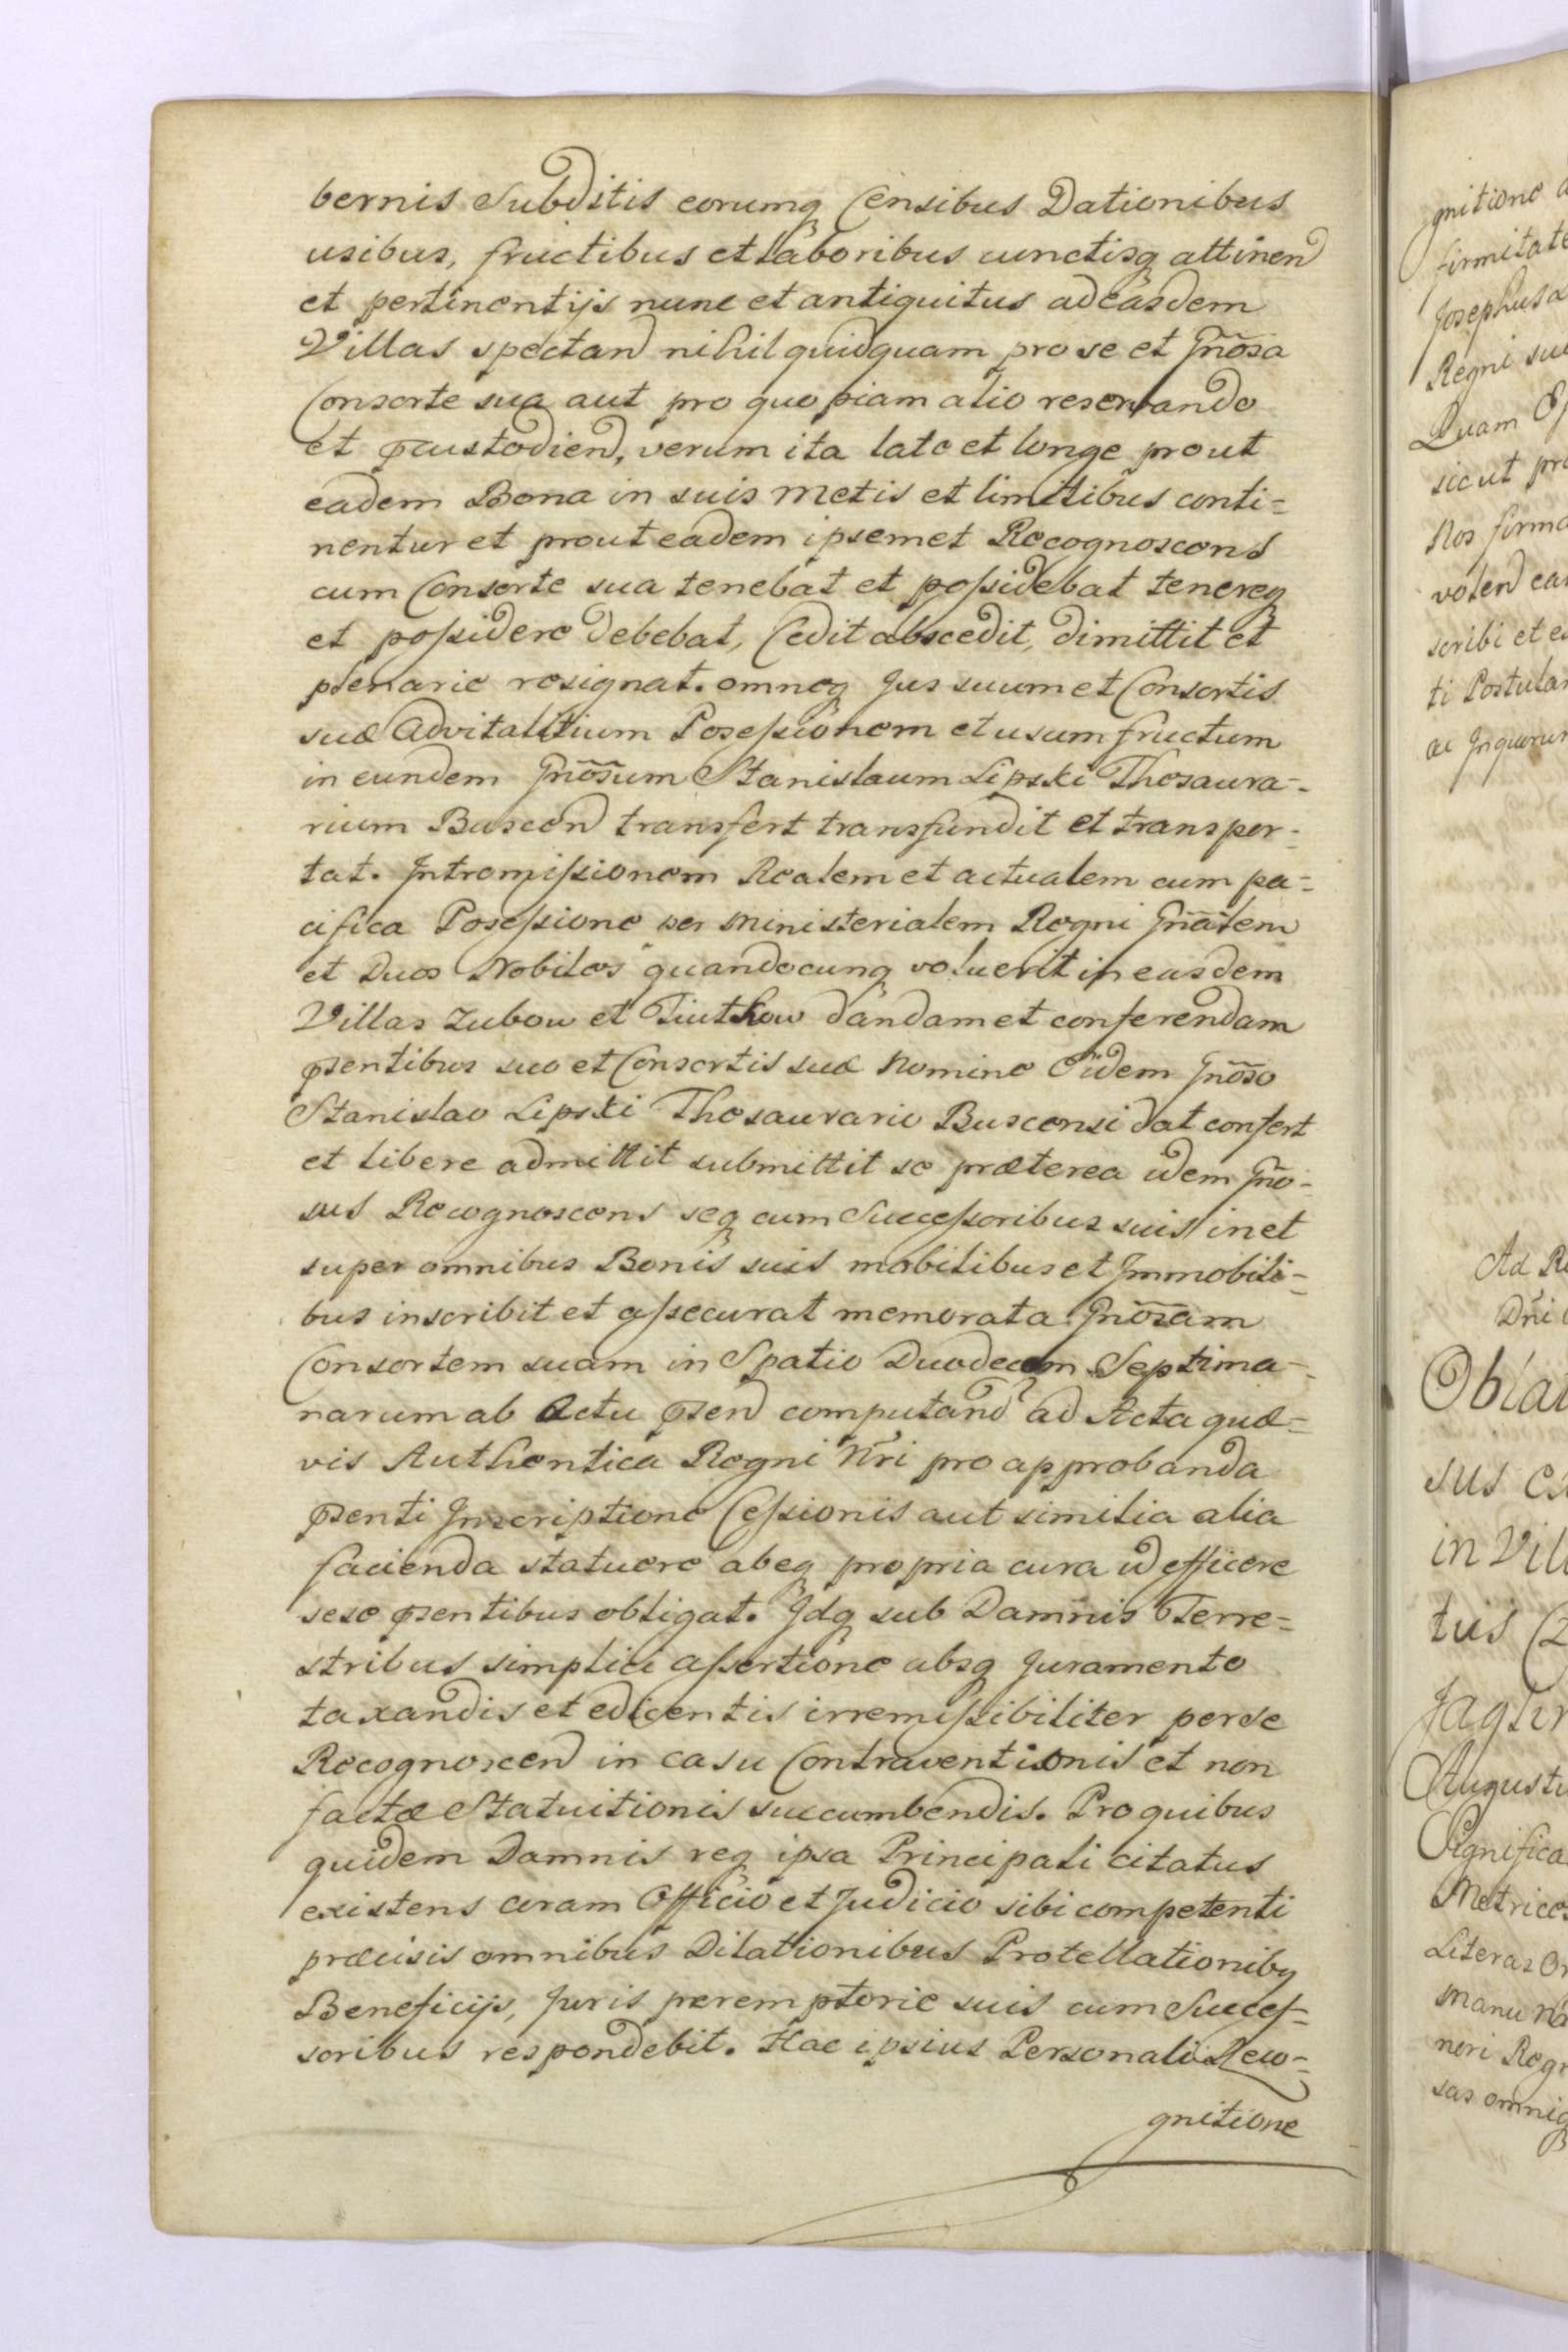 bernis Subditis eorumq Censibus Dationibus
usibus, fructibus et laboribus cunctisq attinen
et pertinentijs nunc et antiquitus ad easdem
Villas spectan nihil quidquam pro se et Gnõsa
Consorte sua aut pro quopiam alio reservando
et pcustodien, verum ita late et longe prout
eadem Bona in suis metis et limitibus conti=
nentur et prout eadem ipsemet Recognoscens
cum Consorte sua tenebat et possidebat tenereq
et possidere debebat, Cedit abscedit, dimittit et
plenarie resignat. omneq Jus suum et Consortis
suæ Advitalitium Posessionem et usumfructum
in eundem Gnõsum Stanislaum Lipski Thesaura=
rium Buscen transfert transfundit et transpor=
tat. Intromissionem Realem et actualem cum pa=
cifica Posessione per Ministerialem Regni Gnãlem
et Duos Nobiles quandocunq voluerit in easdem
Villas Zubow et Tiutkow dandam et conferendam
psentibus suo et Consortis suæ Nomine Eidem Gnõso
Stanislao Lipski Thesaurario Buscensi dat confert
et libere admittit submittit se præterea idem Gño=
sus Recognoscens seq cum Successoribus suis in et
super omnibus Bonis suis mobilibus et Immobili=
bus inscribit et assecurat memorata Gnõsam
Consortem suam in Spatio Duodecem Septima=
narum ab Actu psen computand ad Acta quæ=
vis Authentica Regni Nri pro approbanda
psenti Inscriptione Cessionis aut similia alia
facienda statuere abeq propria cura id efficere
sese psentibus obligat. Idq sub Damnis Terre=
stribus simplici assertione absq Juramento
taxandis et edicentis irremissibiliter per se
Recognoscen in casu Contraventionis et non
factæ Statuitionis succumbendis. Pro quibus
quidem Damnis req ipsa Principali citatus
existens coram Officio et Judicio sibi competenti
præcisis omnibus Dilationibus Protellationibq
Beneficijs, Juris peremptorie suis cum Succes=
soribus respondebit. Hac ipsius Personali Reco=
gnitione
gnitione
firmitate
Josephus
Regni
Quam
sicut
Nos
volen
scribi et
ti Postula
ac
Ad
Dñi
Oblat
sus
in Vil
tuis
Augustu
Significa
Metrices
Literas
manu
neri Reg
sas omniq